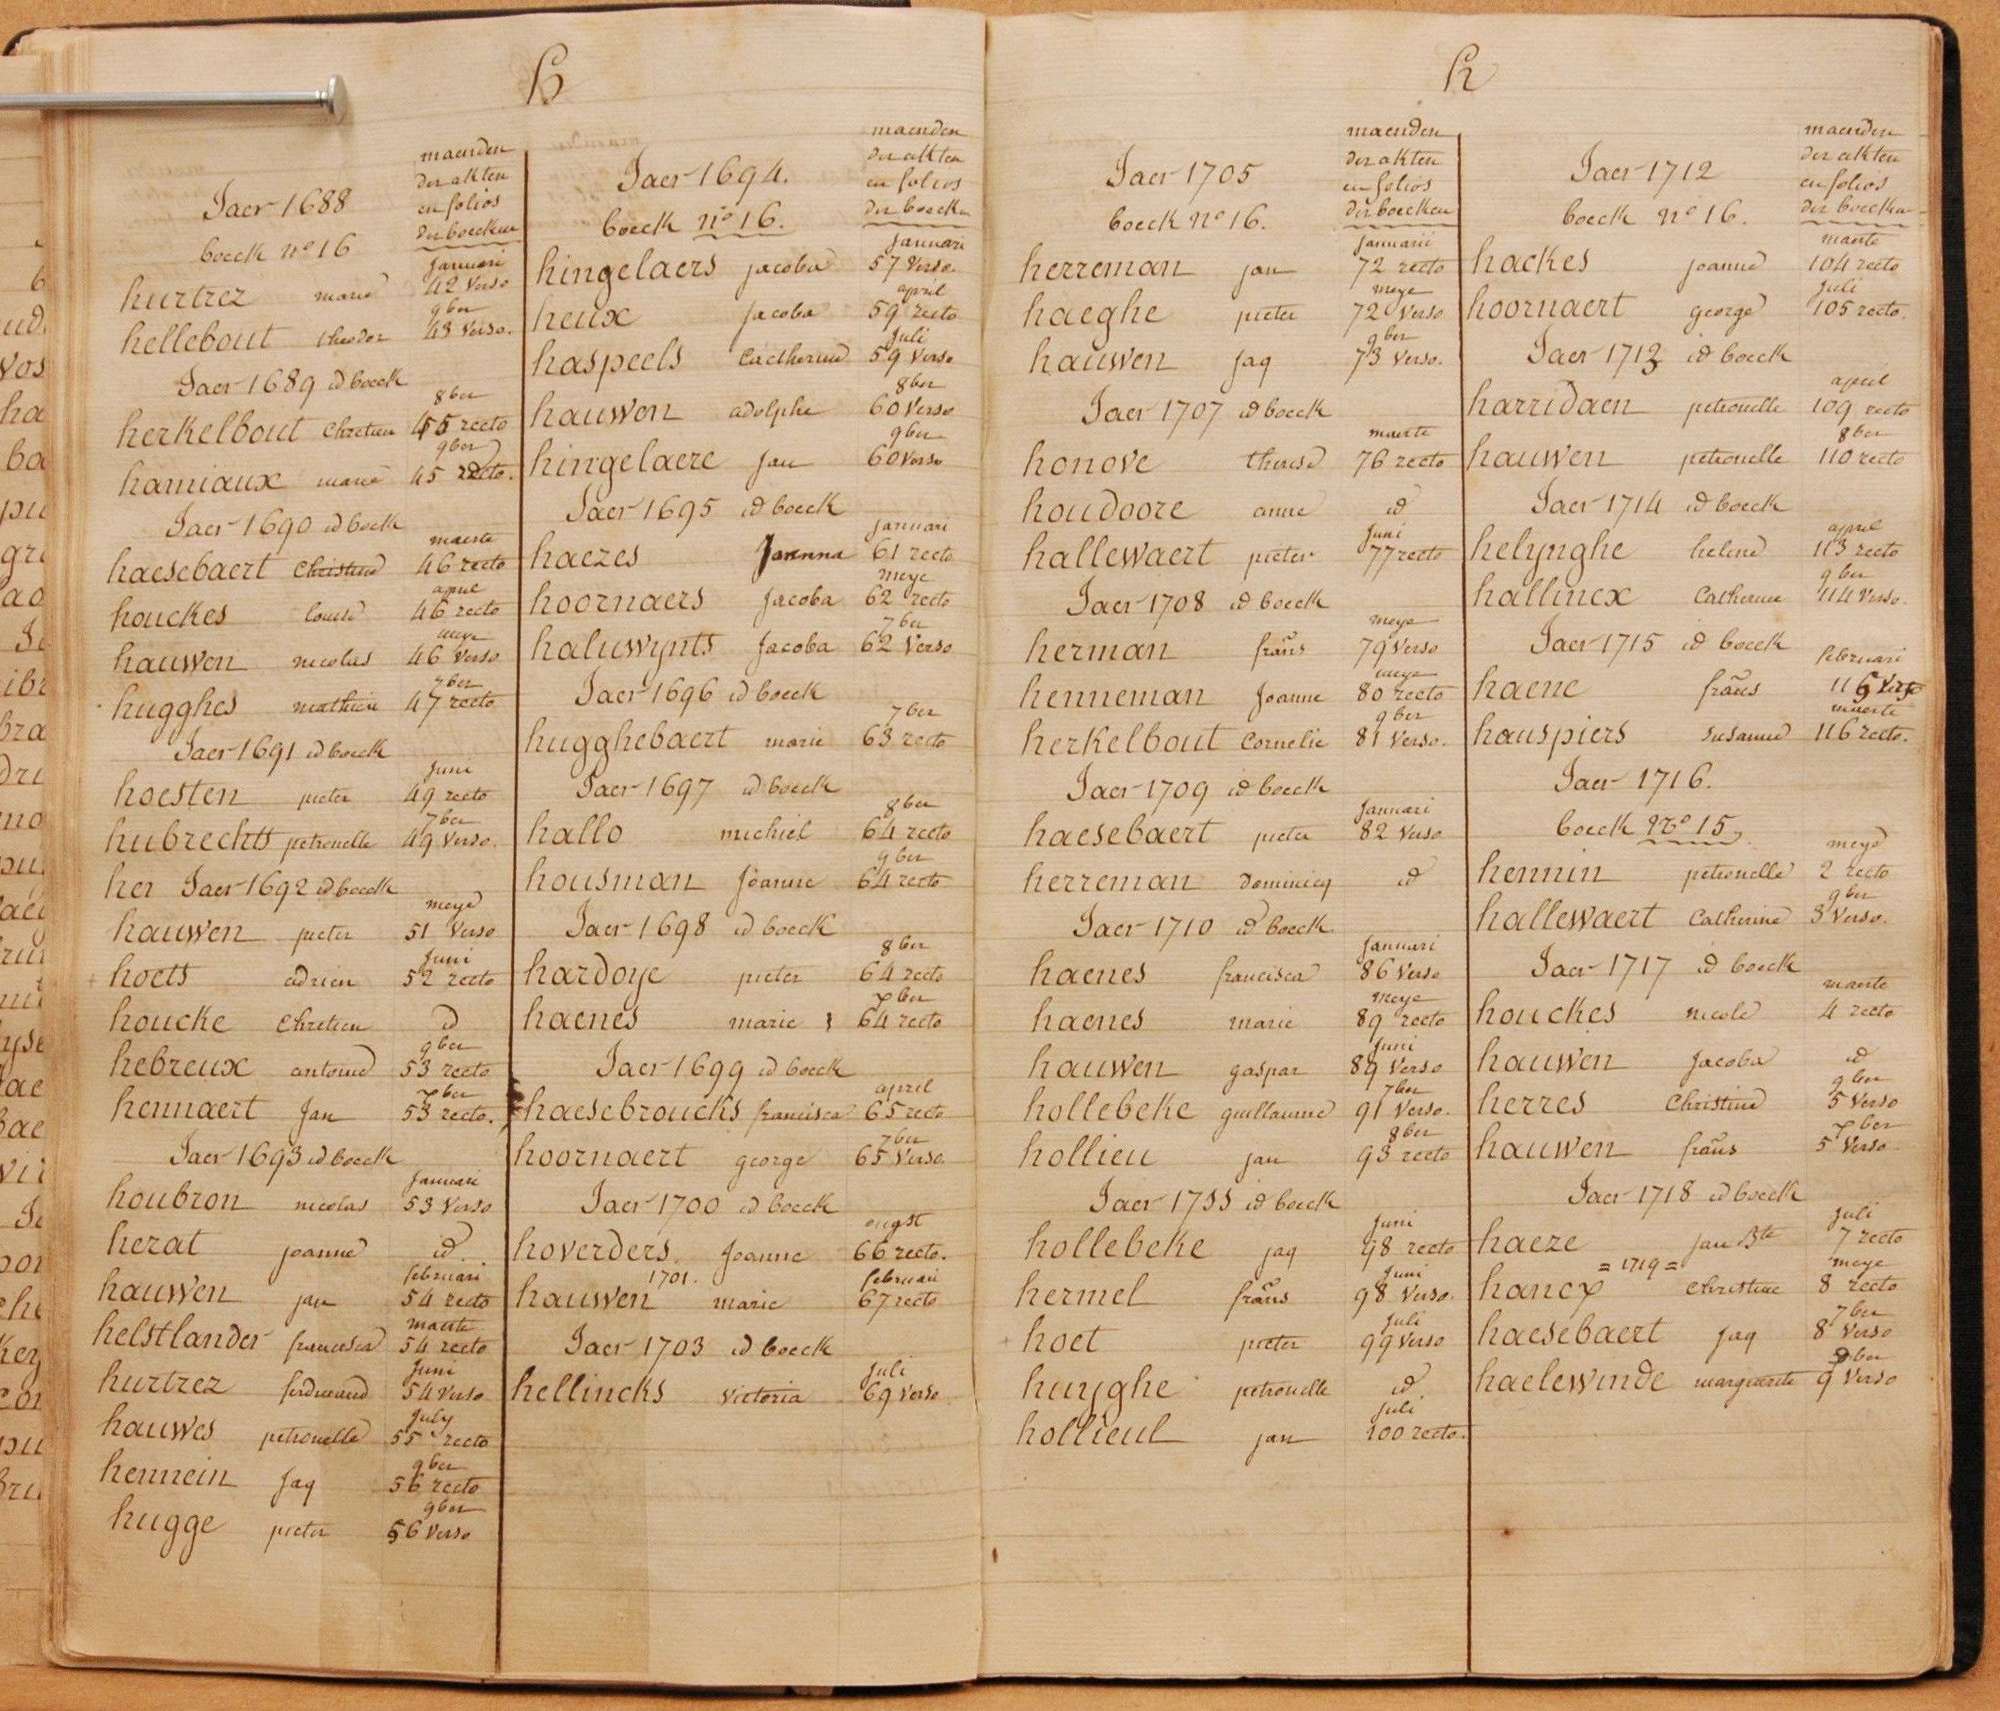 H
maenden
der akten
en folios
der boecken
Jaer 1688
boeck no 16
januari
hurtrez marie 42 verso
9ber
hellebout theodor 43 verso.
Jaer 1689 id boeck
8ber
herkelbout chretien 45 recto
9ber
hamiaux marie 45 recto.
Jaer 1690 id boek
maerte
haesebaert christine 46 recto
april
houckes louise 46 recto
meye
hauwen nicolas 46 verso
7ber
hugghes mathieu 47 recto
Jaer 1691 id boeck
juni
hoesten pieter 49 recto
7ber
hubrechts petronelle 49 verso.
her Jaer 1692 id boeck
meye
hauwen pieter 51 verso
juni
hoets adrien 52 recto
houcke chretien id
9ber
hebreux antoine 53 recto
7ber
hennaert Jan 53 recto.
Jaer 1693 id boeck
januari
houbron nicolas 53 verso
herat joanne id.
februari
hauwen jan 54 recto
maerte
helstlander francisca 54 recto
juni
hurtrez ferdinand 54 verso
july
hauwes petronelle 55 recto
9ber
hennein jaq 56 recto
9ber
hugge pieter 56 verso
maenden
der akten
en folios
der boecken
Jaer 1694.
boeck no 16.
januari
hingelaers jacoba 57 verso.
april
heux jacoba 59 recto
juli
haspeels catherine 59 verso
8ber
hauwen adolphe 60 verso
9ber
hingelaere jan 60 verso
Jaer 1695 id boeck
januari
haezes Joanna 61 recto
meye
hoornaers jacoba 62 recto
7ber
haluwynts jacoba 62 verso
Jaer 1696 id boeck
7ber
hugghebaert marie 63 recto
Jaer 1697 id boeck
8ber
hallo michiel 64 recto
9ber
housman joanne 64 recto
Jaer 1698 id boeck
8ber
hardoye pieter 64 recto
7ber
haenes marie 64 recto
Jaer 1699 id boeck
april
haesebroucks francisca 65 recto
7ber
hoornaert george 65 verso.
Jaer 1700 id boeck
augst
hoverders joanne 66 recto.
1701. februari
hauwen marie 67 recto
Jaer 1703 id boeck
juli
hellincks victoria 69 verso
h
maenden
der akten
en folios
der boecken
Jaer 1705
boeck no 16.
januarii
herreman jan 72 recto
meye
haeghe pieter 72 verso
9ber
hauwen jaq 73 verso.
Jaer 1707 id boeck
maerte
honove therese 76 recto
houdoore anne id
juni
hallewaert pieter 77 recto
Jaer 1708 id boeck
meye
herman frans 79 verso
meye
henneman joanne 80 recto
9ber
herkelbout cornelie 81 verso.
Jaer 1709 id boeck
januari
haesebaert pieter 82 verso
herreman dominicq id
Jaer 1710 id boeck
januari
haenes francisca 86 verso
meye
haenes marie 89 recto
juni
hauwen gaspar 89 verso
7ber
hollebeke guillaume 91 verso.
8ber
hollieu jan 93 recto
Jaer 1711 id boeck
juni
hollebeke jaq 98 recto
juni
hermel frans 98 verso.
juli
hoet pieter 99 verso
huyghe petronelle id.
juli
hollieul jan 100 recto.
maenden
der akten
en folios
der boecken
Jaer 1712
boeck no 16.
maerte
hackes joanne 104 recto
juli
hoornaert george 105 recto.
Jaer 1713 id boeck
april
harridaen petronelle 109 recto
8ber
hauwen petronelle 110 recto
Jaer 1714 id boeck
april
helynghe heline 113 recto
9ber
hallincx catherine 114 verso.
Jaer 1715 id boeck
februari
haene frans 115 verso
maerte
hauspiers susanne 116 recto.
Jaer 1716.
boeck no 15.
meye
hennin petronelle 2 recto
9ber
hallewaert catherine 3 verso.
Jaer 1717 id boeck
maerte
houckes nicole 4 recto
hauwen jacoba id
9ber
herres christine 5 verso
7ber
hauwen frans 5 verso.
Jaer 1718 id boeck
juli
haeze jan Bte 7 recto
= 1719 = meye
hancx christine 8 recto
7ber
haesebaert jaq 8 verso
9ber
haelewinde marguerite 9 verso